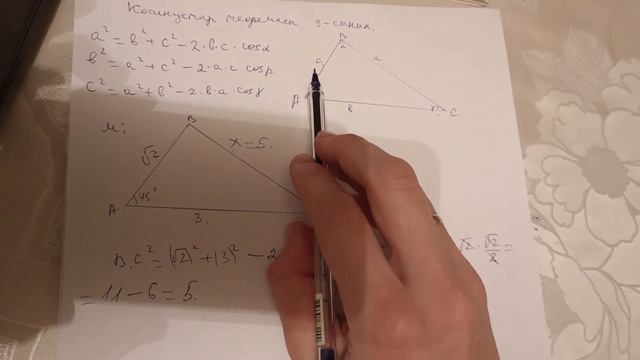 Косинустар теоремасы 9-синип.
a² = b² + c² - 2·b·c·cosα
b² = a² + c² - 2·a·c cosβ
c² = a² + b² - 2·b·a·cosγ
B
c
a
A
b
C
М:
B
√2
x = 5.
A
45°
3.
B.C² = (√2)² + (3)² - 2
√2 · √2/2 =
= 11 - 6 = 5.